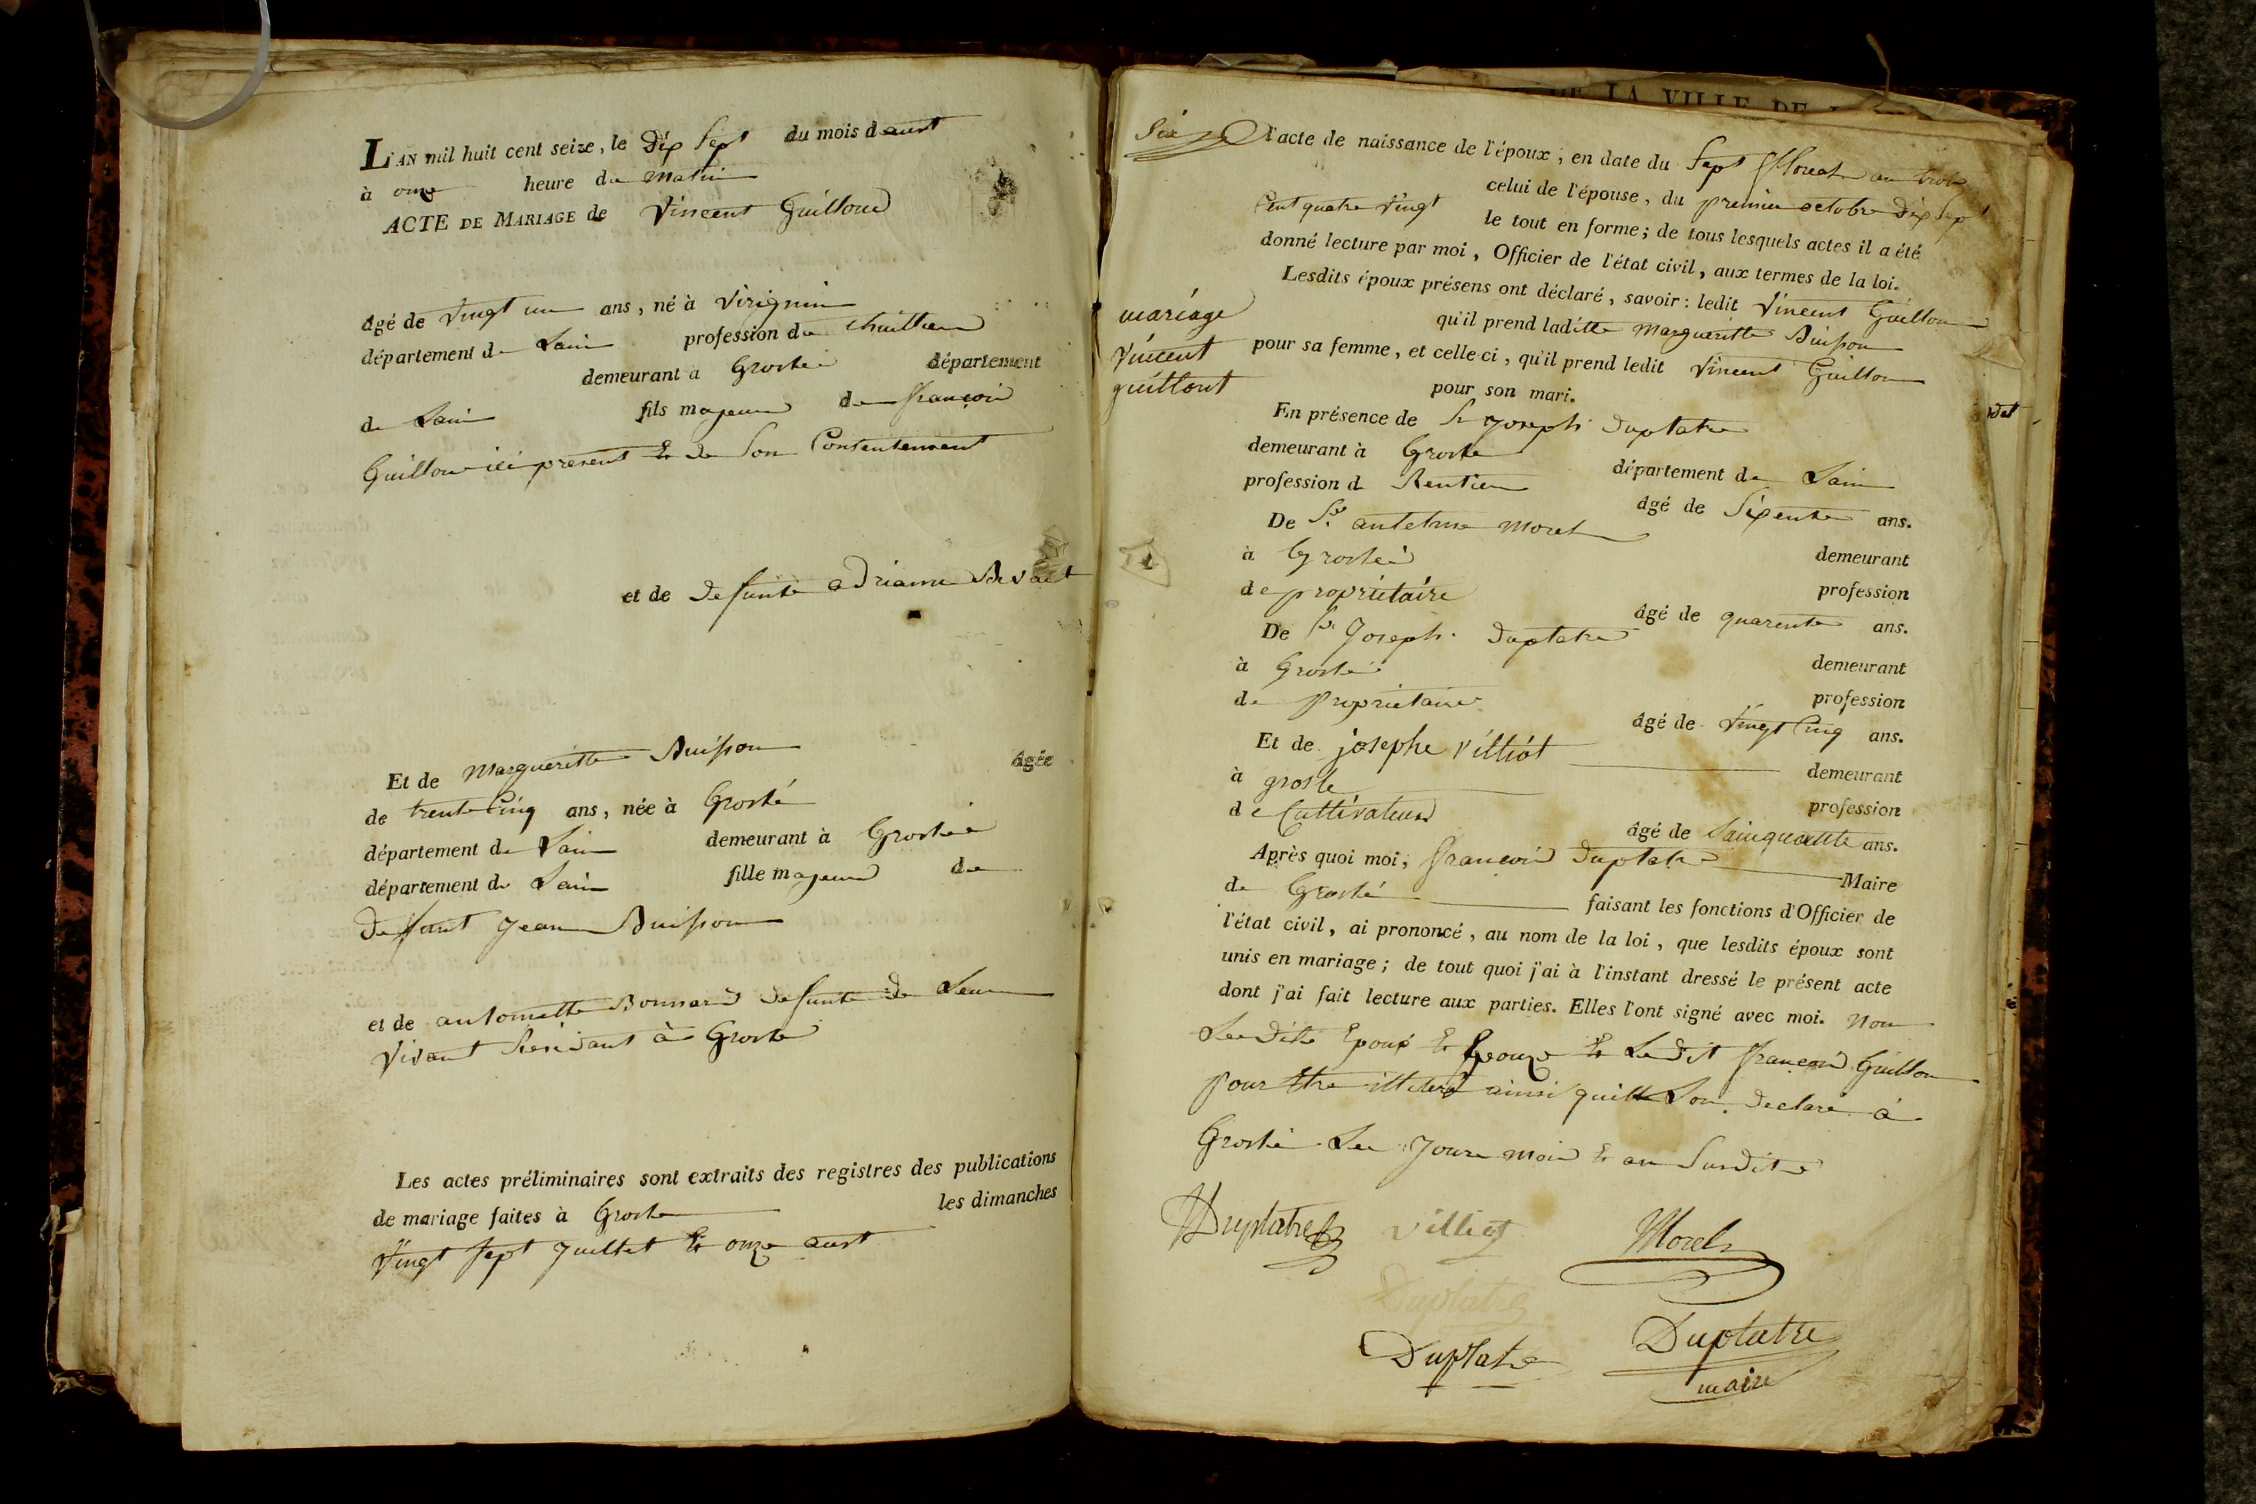 L'AN mil huit cent seize, le Dix Sept du mois d aust
à onze heure du matin
ACTE DE MARIAGE de Vincent Guilloud
âgé de vingt un ans, né à Virignin
département de Lain profession de
demeurant à Groslée département
de Lain fils majeur de françois
Guillou ici present et de Son Consentement
et de defunte adrianne
Et de Margueritte Buisson âgée
de trente Cinq ans, née à Groslé
département de Lain demeurant à Groslée
département de Lain fille majeure de
Defunt Jean Buisson
et de antoinette Bonnard defunte de Leur
Vivant Residant à Grosle
Les actes préliminaires sont extraits des registres des publications
de mariage faites à Grosle les dimanches
Vingt Sept Juillet et onze aust
Six
l'acte de naissance de l'époux, en date du Sept floreal an trois
celui de l'épouse, du premier octobre Dix Sept
Cent quatre Vingt le tout en forme; de tous lesquels actes il a été
donné lecture par moi, Officier de l'état civil, aux termes de la loi.
Lesdits époux présens ont déclaré, savoir: ledit Vincent Guillou
mariage
Vincent
guillout
qu'il prend laditte Margueritte Buisson
pour sa femme, et celle-ci, qu'il prend ledit Vincent Guillou
pour son mari.
En présence de Sr Joseph Duplatre
demeurant à Grosle département de Lain
profession de Rentier âgé de Sixente ans.
De Sr. antelme Morel demeurant
à Groslée profession
de propriétaire âgé de quarente ans.
De Sr Joseph Duplatre demeurant
à Groslé profession
de Propriétaire âgé de Vingt Cinq ans.
Et de josephe villiot demeurant
à grosle profession
de Cultivateur âgé de Sainquante ans.
Après quoi moi, françois Duplatre Maire
de Groslé faisant les fonctions d'Officier de
l'état civil, ai prononcé, au nom de la loi, que lesdits époux sont
unis en mariage; de tout quoi j'ai à l'instant dressé le présent acte
dont j'ai fait lecture aux parties. Elles l'ont signé avec moi. Non
Lesdits Epoux et Epouze et Ledit françois Guillou
pour Etre illeteré ainsi quill Lon declaré à
Groslé Les Jour mois et an Susdits
Duplatre villiot Morel
Duplatre
Duplatre Duplatre
maire